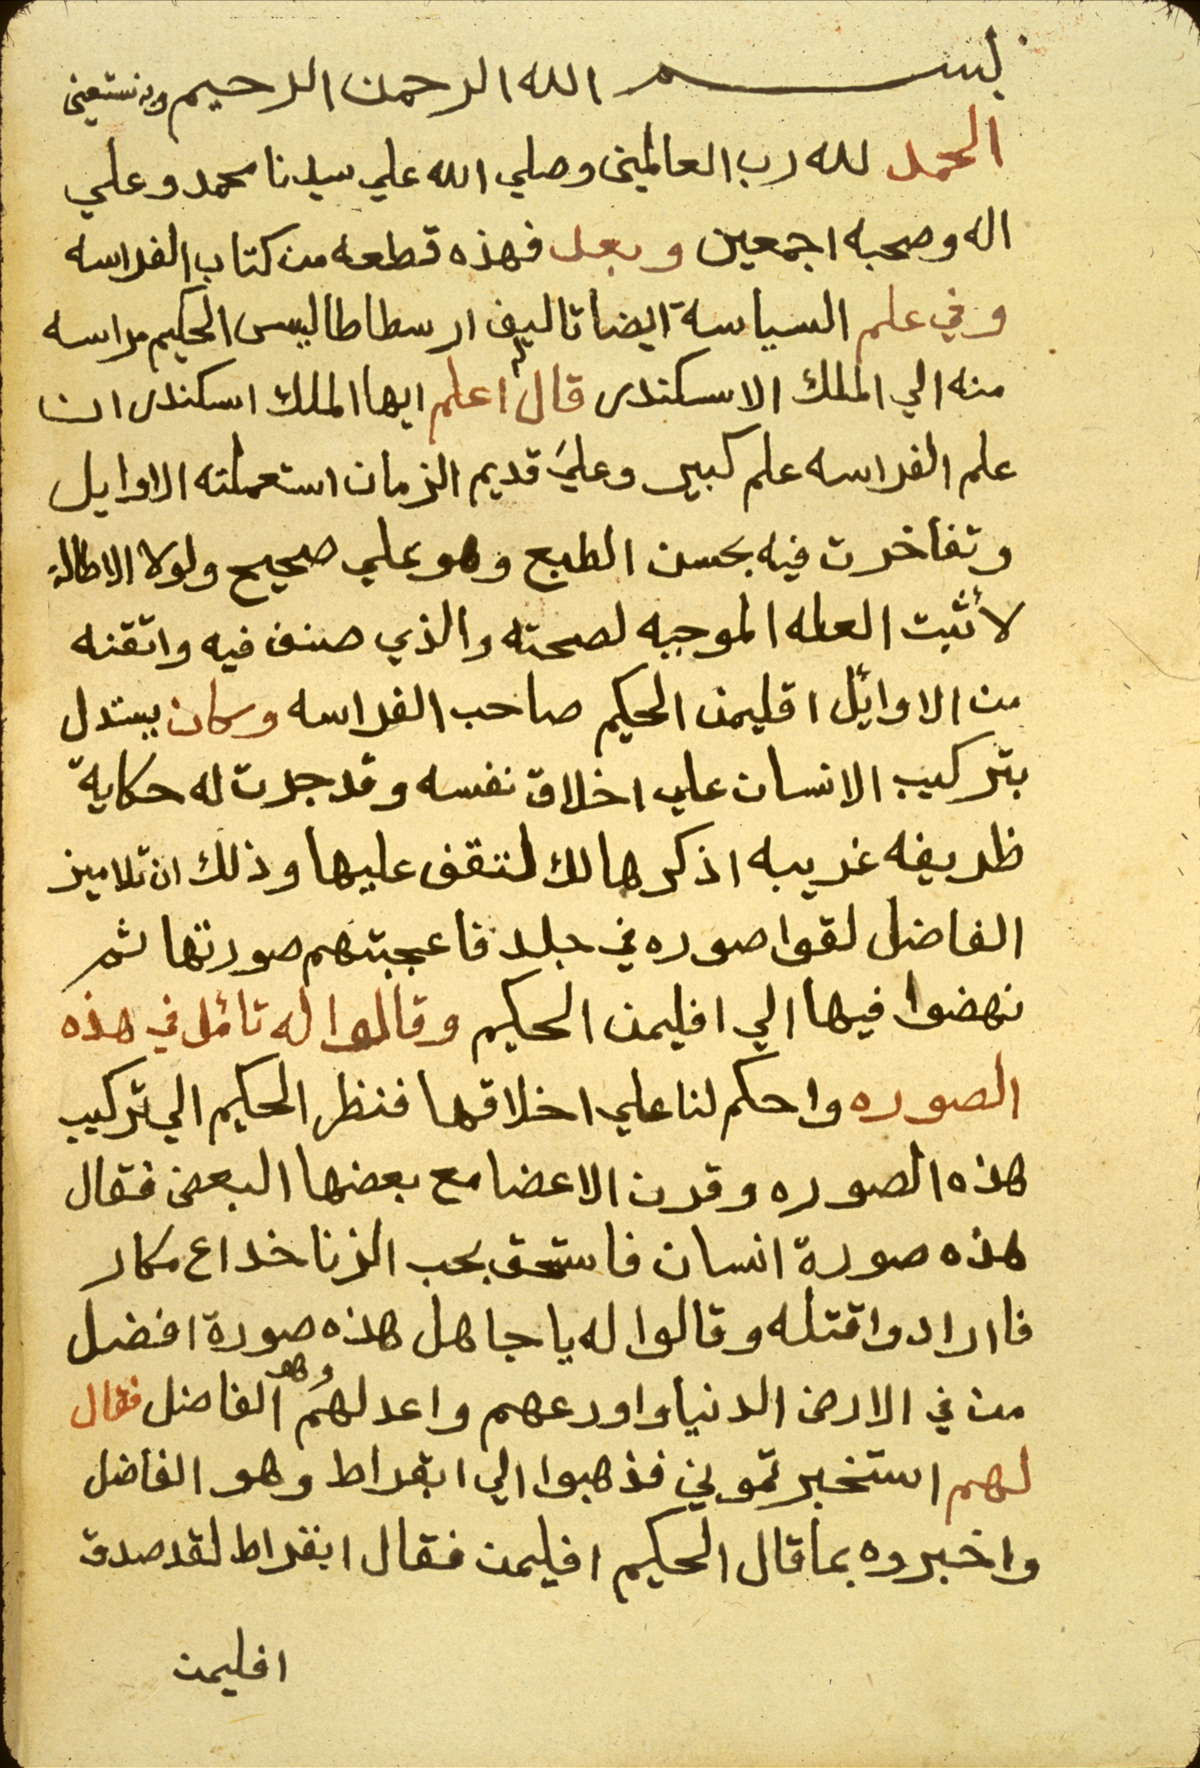 بسم الله الرحمن الرحيم وبه نستعين
الحمد لله رب العالمين وصلي الله علي سيدنا محمد وعلي
اله وصحبه اجمعين وبعد فهذه قطعه من كتاب الفراسه
وفي علم السياسة ايضا تاليف ارسطاطاليس الحكيم مراسه
منه الي الملك الاسكندر قال اعلم ايها الملك اسكندر ان
علم الفراسه علم كبير وعلي قديم الزمان استعملته الاوايل
وتفاخرت فيه بحسن الطبع وهو علي صحيح ولولا الاطالة
لأثبت العله الموجبه لصحته والذي صنف فيه واتقنه
من الاوائل اقليمن الحكيم صاحب الفراسه وكان يستدل
بتركيب الانسان علي اخلاق نفسه وقد جرت له حكاية
ظريفه غريبه اذكرها لك لتقف عليها وذلك ان تلاميز
الفاضل لقوا صوره في جلد فاعجبتهم صورتها ثم
نهضوا فيها الي افليمن الحكيم وقالوا له تامل في هذه
الصوره واحكم لنا علي اخلاقها فنظر الحكيم الي تركيب
هذه الصوره وقرن الاعضا مع بعضها البعض فقال
هذه صورة انسان فاسق يحب الزنا خداع مكار
فارادوا قتله وقالوا له يا جاهل هذه صورة افضل
من في الارض الدنيا واورعهم واعدلهم وهو الفاضل فقال
لهم استخبرتموني فذهبوا الي ابقراط وهو الفاضل
واخبروه بما قال الحكيم افليمن فقال ابقراط لقد صدق
افليمن